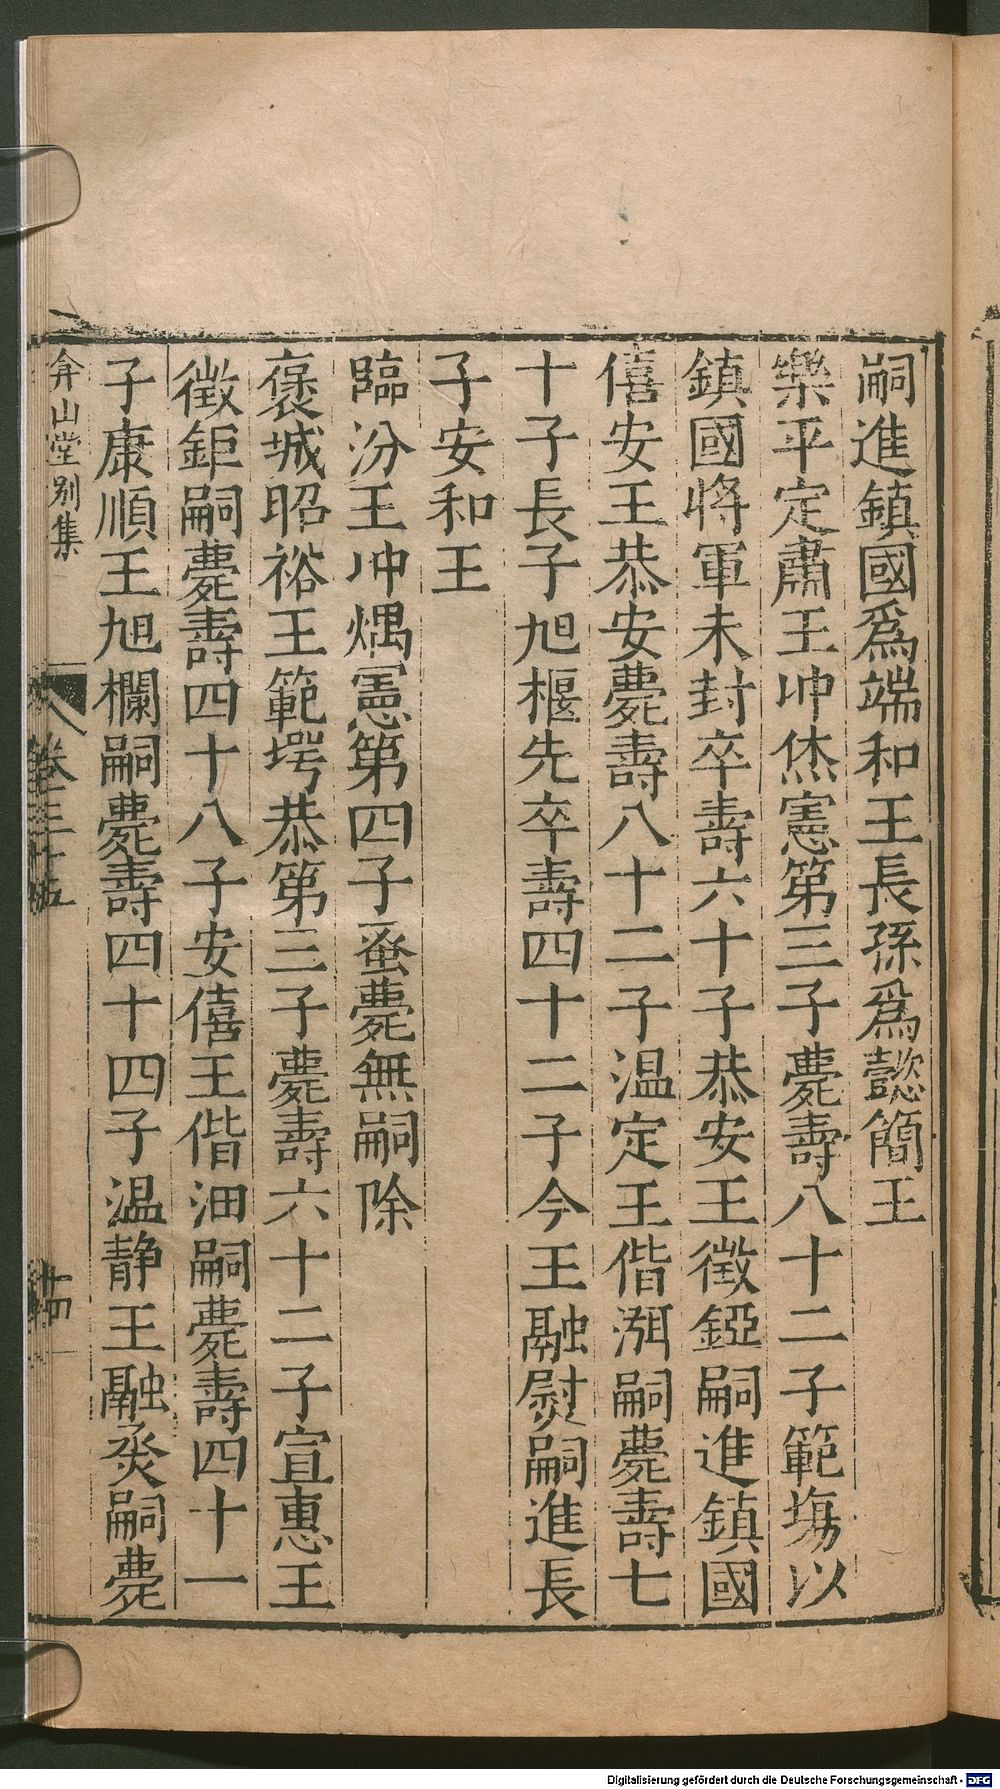 嗣進鎮國爲端和王長孫爲懿簡王
樂平定肅王冲烋憲第三子薨壽八十二子範塲以
鎮國將軍未封卒壽六十子恭安王徵錏嗣進鎮國
僖安王恭安薨壽八十二子温定王偕洱嗣薨壽七
十子長子旭椻先卒壽四十二子今王融熨嗣進長
子安和王
臨汾王冲㷒憲第四子蚤薨無嗣除
褒城昭裕王範堮恭第三子薨壽六十二子宣惠王
徵鉅嗣薨壽四十八子安僖王偕沺嗣薨壽四十一
子康順王旭欄嗣薨壽四十四子温静王融烾嗣薨
弇山堂別集
卷三十五
十四
Digitalisierung gefördert durch die Deutsche Forschungsgemeinschaft - DFG